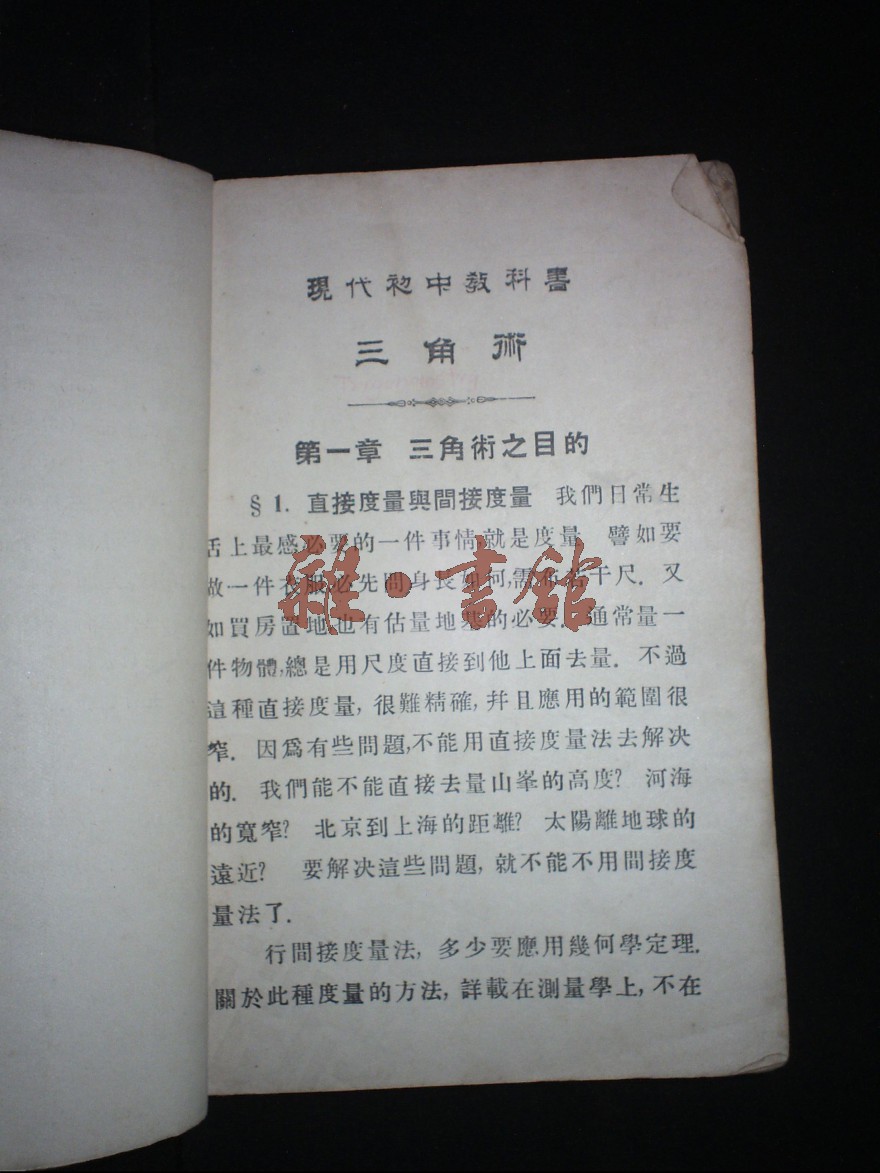 現代初中教科書
三角術
第一章 三角術之目的
§1. 直接度量與間接度量 我們日常生
活上最感必要的一件事情,就是度量. 譬如要
做一件衣服,必先問身長如何,需布若干尺. 又
如買房置地,也有估量地基的必要. 通常量一
件物體,總是用尺度直接到他上面去量. 不過
這種直接度量,很難精確,幷且應用的範圍很
窄. 因爲有些問題,不能用直接度量法去解决
的. 我們能不能直接去量山峯的高度? 河海
的寬窄? 北京到上海的距離? 太陽離地球的
遠近? 要解决這些問題,就不能不用間接度
量法了.
行間接度量法,多少要應用幾何學定理.
關於此種度量的方法,詳載在測量學上,不在
雜·書館